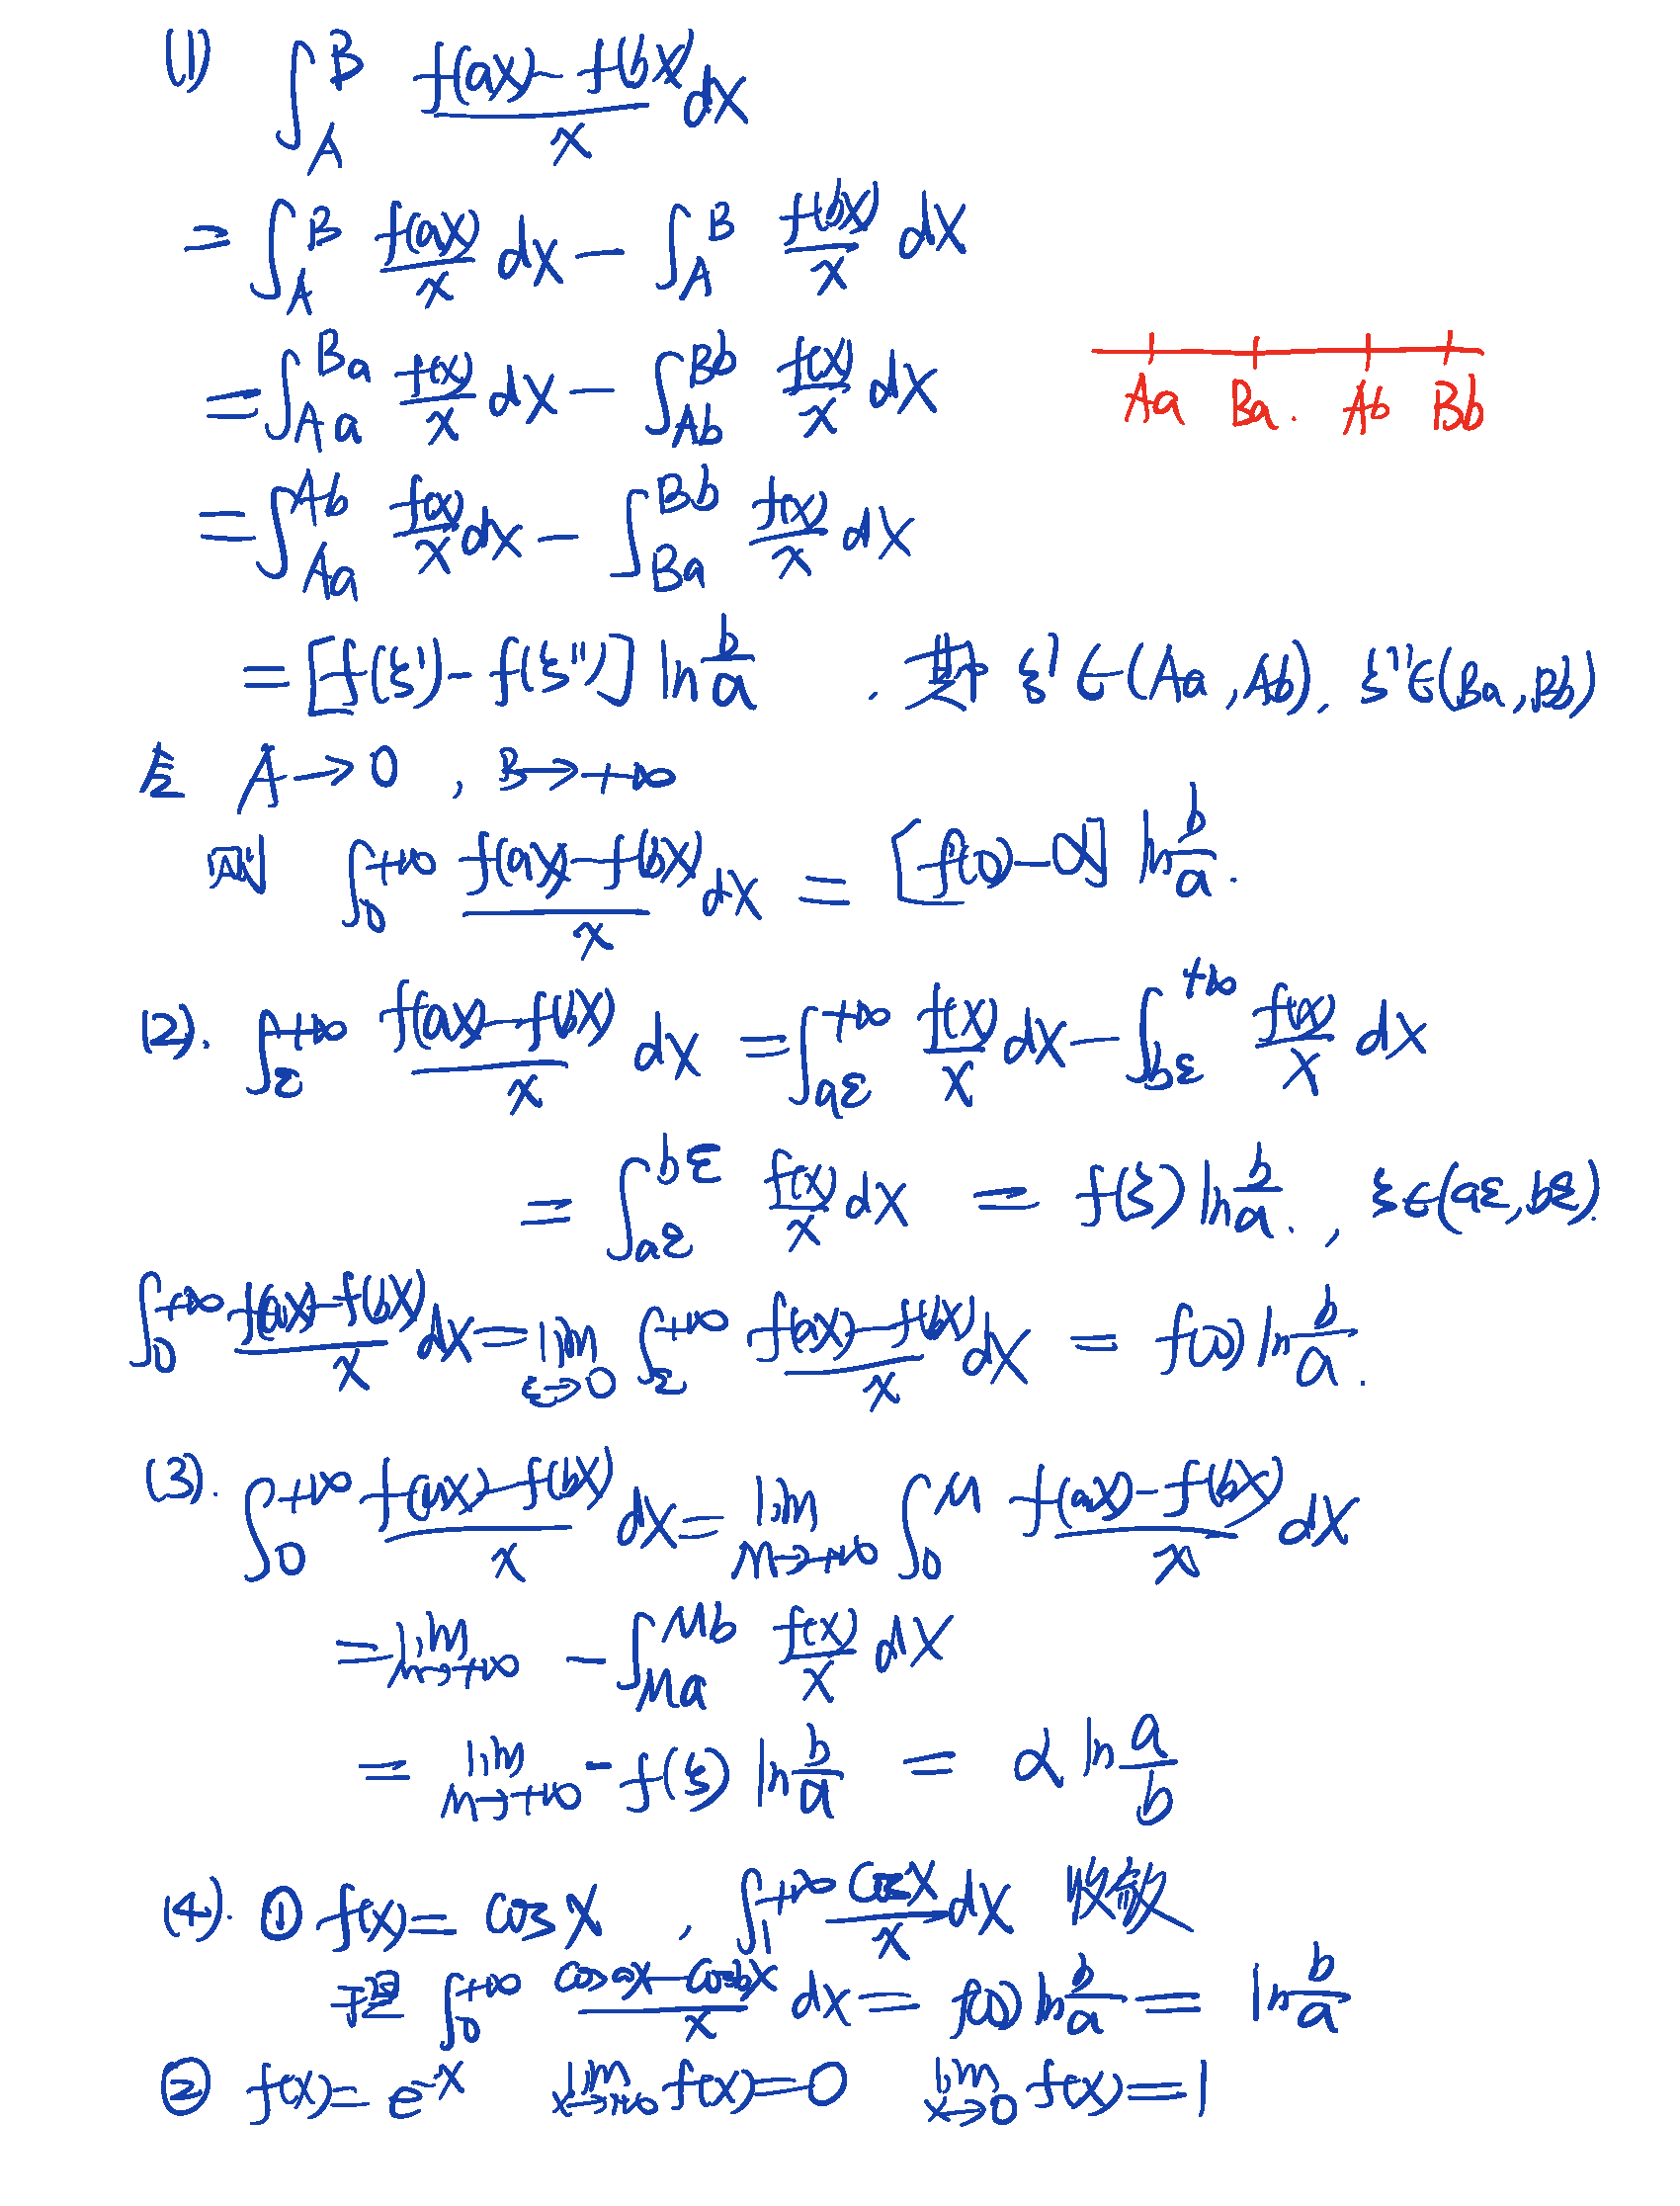 (1) ∫_A^B (f(ax) − f(bx))/x dx
= ∫_A^B f(ax)/x dx − ∫_A^B f(bx)/x dx
= ∫_{Aa}^{Ba} f(x)/x dx − ∫_{Ab}^{Bb} f(x)/x dx
Aa Ba. Ab Bb
= ∫_{Aa}^{Ab} f(x)/x dx − ∫_{Ba}^{Bb} f(x)/x dx
= [f(ξ') − f(ξ'')] ln b/a , 其中 ξ' ∈ (Aa, Ab), ξ'' ∈ (Ba, Bb)
令 A → 0 , B → +∞
则 ∫_0^{+∞} (f(ax) − f(bx))/x dx = [f(0) − α] ln b/a.
(2). ∫_ε^{+∞} (f(ax) − f(bx))/x dx = ∫_{aε}^{+∞} f(x)/x dx − ∫_{bε}^{+∞} f(x)/x dx
= ∫_{aε}^{bε} f(x)/x dx = f(ξ) ln b/a. , ξ ∈ (aε, bε).
∫_0^{+∞} (f(ax) − f(bx))/x dx = lim_{ε→0} ∫_ε^{+∞} (f(ax) − f(bx))/x dx = f(0) ln b/a.
(3). ∫_0^{+∞} (f(ax) − f(bx))/x dx = lim_{M→+∞} ∫_0^M (f(ax) − f(bx))/x dx
= lim_{M→+∞} − ∫_{Ma}^{Mb} f(x)/x dx
= lim_{M→+∞} − f(ξ) ln b/a = α ln a/b
(4). ① f(x) = cos x , ∫_1^{+∞} cos x/x dx 收敛
于是 ∫_0^{+∞} (cos ax − cos bx)/x dx = f(0) ln b/a = ln b/a
② f(x) = e^{−x} lim_{x→+∞} f(x) = 0 lim_{x→0} f(x) = 1